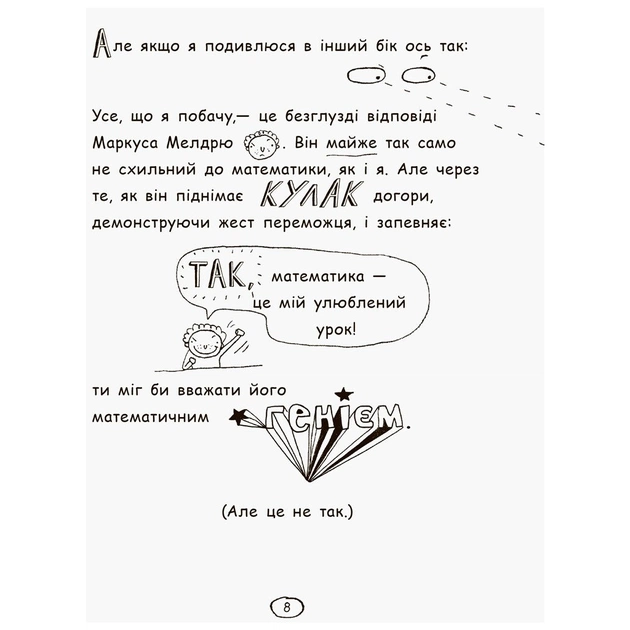 Але якщо я подивлюся в інший бік ось так:
Усе, що я побачу,— це безглузді відповіді
Маркуса Мелдрю . Він майже так само
не схильний до математики, як і я. Але через
те, як він піднімає КУЛАК догори,
демонструючи жест переможця, і запевняє:
ТАК, математика —
це мій улюблений
урок!
ти міг би вважати його
математичним ГЕНІЄМ.
(Але це не так.)
8